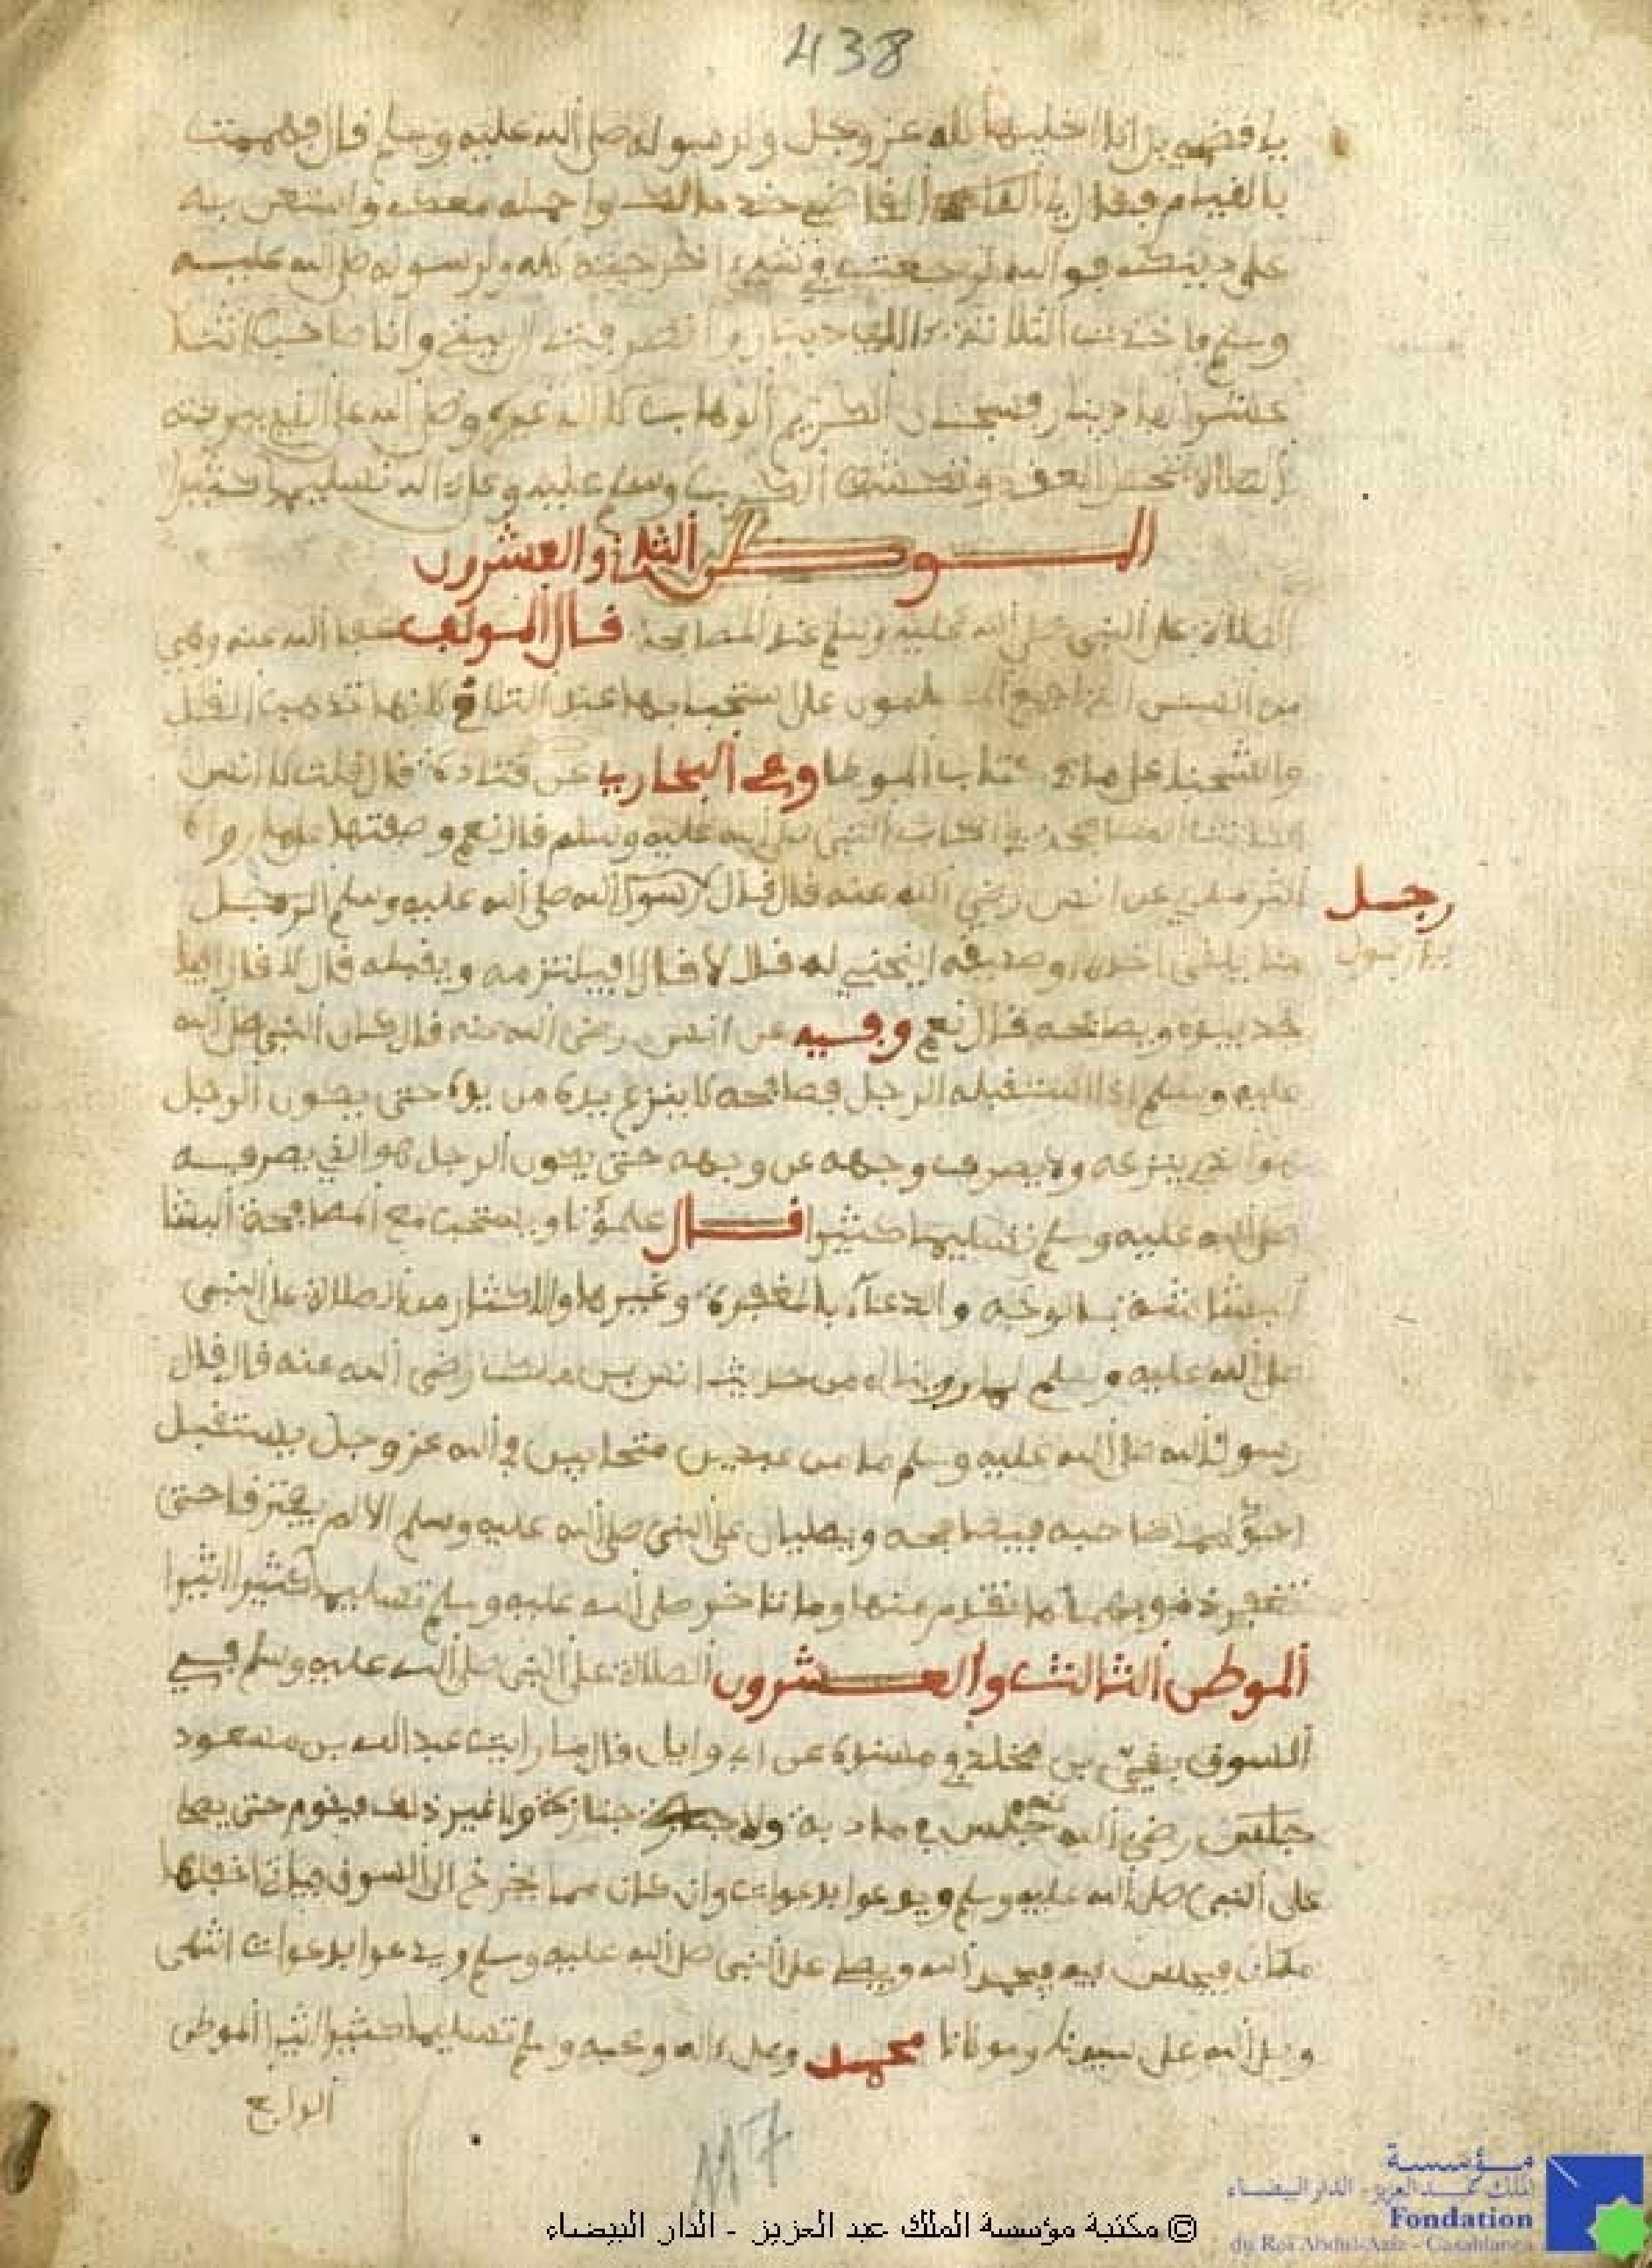 438
انا اخليها لله عز وجل ولرسوله صلى الله عليه وسلم فال فهممت
بالفيام ففال لي الفاضي خذ مالك واحمله معك واستعن به
على دينك فوالله لا رجعت في شيء اخرجته لله ولرسوله صلى الله عليه
وسلم فاخذت الثلاثة دينار وانصرفت الى بيتي وانا صاحب اثنا
عشر دينار فسبحان الكريم الوهاب لا اله غيره وصلى الله على النبي
الصلاة تحل العفد وتكشف الكرب وسلم عليه وعلى اله تسليما كثيرا
الموطن الثاني والعشرون
الصلاة على النبي صلى الله عليه وسلم عند المصافحة فال المولف عفا الله عنه وهي
من السنن التي اجمع المسلمون على عند التلافي لانها تذهب الغل
والشحنا على ما في كتاب الموطا وفي البخاري عن فتادة فال فلت لانس
اكانت المصافحة في اصحاب النبي صلى الله عليه وسلم فال نعم
الترمذي عن انس رضي الله عنه فال فال لرسول الله صلى الله عليه وسلم الرجل
رجل
يا رسول
منا يلفى اخاه او صديفه اينحني له فال لا فال افيلتزمه ويفبله فال لا فال افيا
خذ بيده ويصافحه فال نعم وفيه عن انس رضي الله عنه فال كان النبي صلى الله
عليه وسلم اذا استفبله الرجل فصافحه لا ينزع يده من يده حتى يكون الرجل
هو الذي ينزعه ولا يصرف وجهه عن وجهه حتى يكون الرجل هو الذي يصرفه
صلى الله عليه وسلم تسليما كثيرا فال علماؤنا ويستحب مع المصافحة البشا
البشاشة بالوجه والدعاء بالمغفرة وغيرها والاكثار من الصلاة على النبي
صلى الله عليه وسلم لما رويناه من حديث انس بن مالك رضي الله عنه فال فال
رسول الله صلى الله عليه وسلم ما من عبدين متحابين في الله عز وجل يستفبل
احدهما صاحبه فيصافحه ويصليان على النبي صلى الله عليه وسلم الا لم يفترفا حتى
تغفر ذنوبهما ما تفدم منها وما تاخر صلى الله عليه وسلم تسليما كثيرا اثيرا
الموطن الثالث والعشرون الصلاة على النبي صلى الله عليه وسلم في
السوف بفي بن مخلد في مسنده عن ابي وايل فال ما رايت عبد الله بن مسعود
جلس رضي الله عنه جلس في مادبة ولا جنازة ولا غير ذلك فيفوم حتى يصلي
على النبي صلى الله عليه وسلم ويدعوا بدعوات وان كان مما يخرج الى السوف فياتي اغفلها
مكان فيجلس فيه فيحمد الله ويصلي على النبي صلى الله عليه وسلم ويدعوا بدعوات انتهى
وصلى الله على سيدنا ومولانا محمد وعلى ءاله وصحبه وسلم تسليما كثيرا اثيرا الموطن
الرابع
117
© مكتبة مؤسسة الملك عبد العزيز - الدار البيضاء
مؤسسة
الملك عبد العزيز - الدار البيضاء
Fondation
du Roi Abdul-Aziz - Casablanca